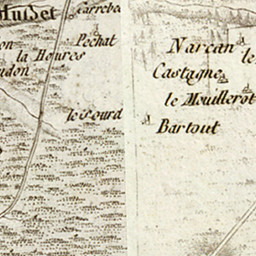 Carrebe
Pechat
la Houres
le Sourd
Narcan
le
Castagne
le Mouillerot
Bartout